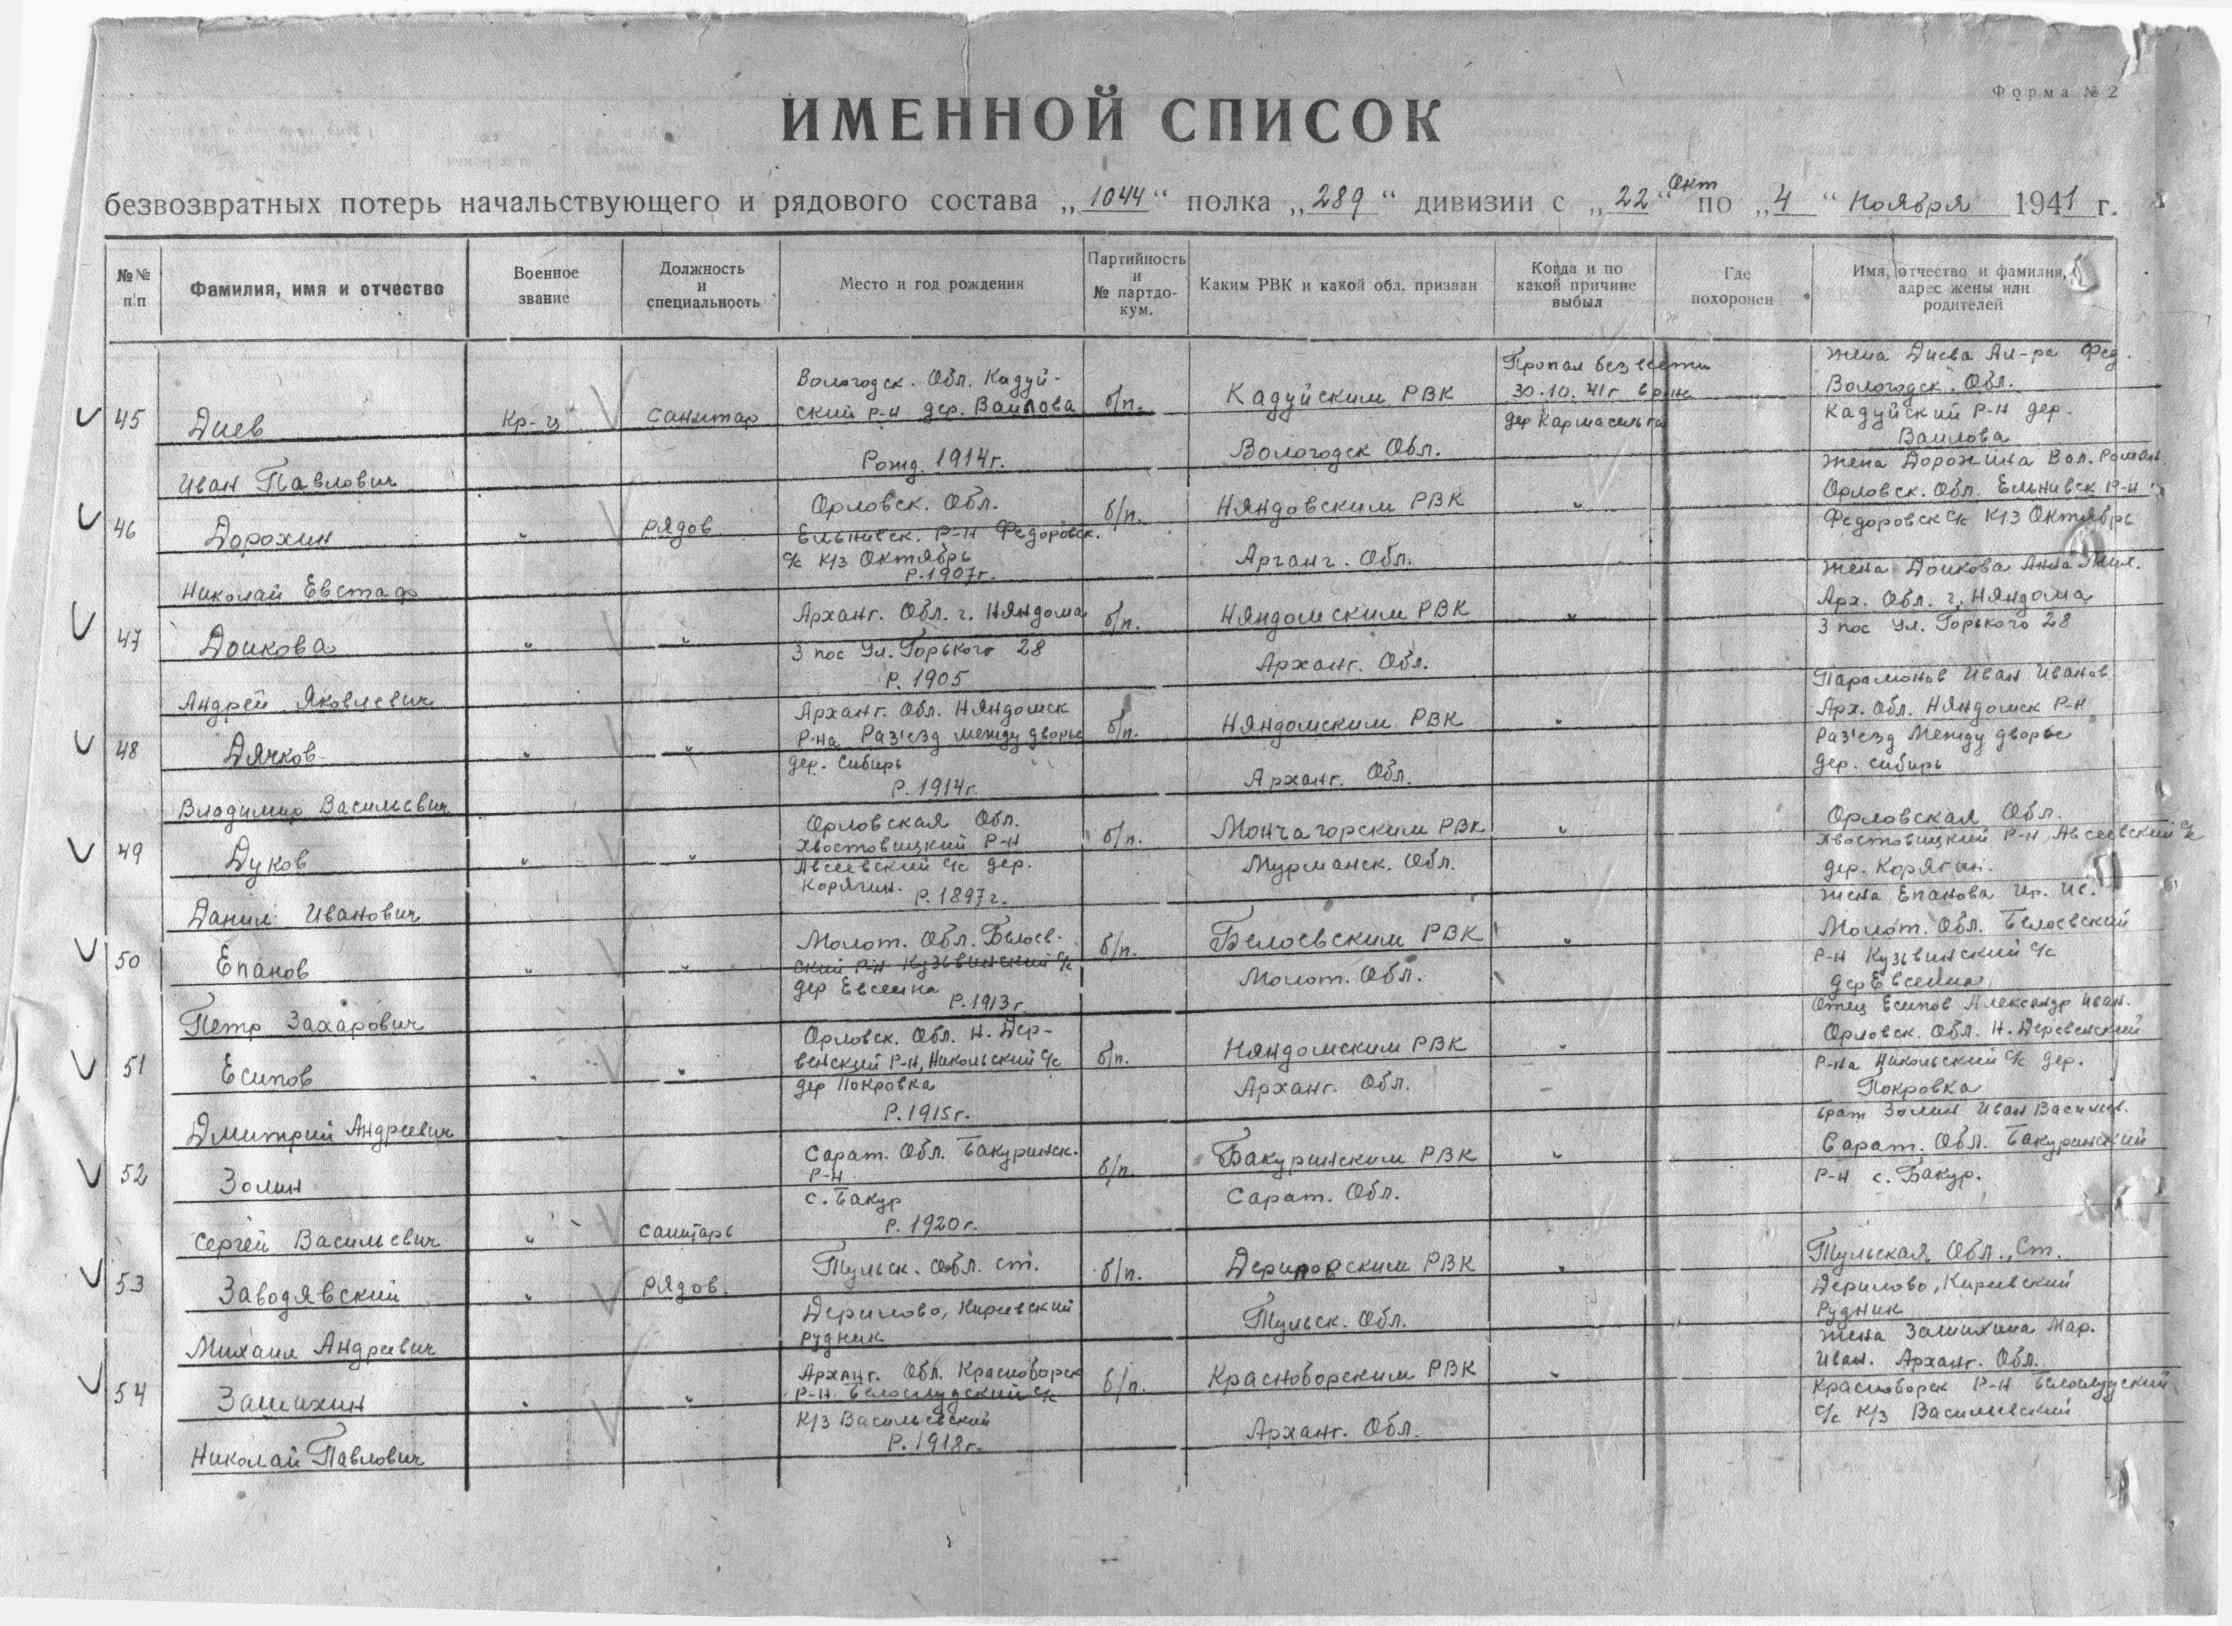 Форма № 2
ИМЕННОЙ СПИСОК
безвозвратных потерь начальствующего и рядового состава „1044“ полка „289“ дивизии с „22“ Окт по „4“ Ноября 1941 г.
№№ п/п
Фамилия, имя и отчество
Военное звание
Должность и специальность
Место и год рождения
Партийность и № партдокум.
Каким РВК и какой обл. призван
Когда и по какой причине выбыл
Где похоронен
Имя, отчество и фамилия, адрес жены или родителей
45
Диев
Иван Павлович
Кр-ц
Санитар
Вологодск. Обл. Кадуй-
ский р-н дер. Ваилова
Рожд. 1914г.
б/п.
Кадуйским РВК
Вологодск Обл.
Пропал без вести
30.10.41г в р-не
дер Кармасельга
Жена Диева Ал-ра Фед.
Вологодск. Обл.
Кадуйский Р-н дер.
Ваилова
46
Дорохин
Николай Евстаф
"
Рядов
Орловск. Обл.
Ельнивск. Р-н Федоровск.
с/с К/з Октябрь
Р. 1907г.
б/п.
Няндовским РВК
Арганг. Обл.
"
Жена Дорохина Вал. Роман.
Орловск. Обл. Ельнивск Р-н
Федоровск с/с К/з Октябрь
47
Доикова
Андрей Яковлевич
"
"
Арханг. Обл. г. Няндома
3 пос Ул. Горького 28
Р. 1905
б/п.
Няндомским РВК
Арханг. Обл.
"
Жена Доикова Анна Мих.
Арх. Обл. г. Няндома
3 пос Ул. Горького 28
48
Дячков
Владимир Васильевич
"
"
Арханг. Обл. Няндомск
Р-на Раз'езд Между дворье
дер. Сибирь
Р. 1914г.
б/п.
Няндомским РВК
Арханг. Обл.
"
Парамонов Иван Иванов.
Арх. Обл. Няндомск Р-н
Раз'езд Между дворье
дер. Сибирь
49
Дуков
Данил Иванович
"
"
Орловская Обл.
Хвостовицкий Р-н
Авсеевский с/с дер.
Корягин. Р. 1897г.
б/п.
Мончагорским РВК
Мурманск. Обл.
"
Орловская Обл.
Хвостовицкий Р-н, Авсеевский с/с
дер. Корягин.
50
Епанов
Петр Захарович
"
"
Молот. Обл. Белоев-
ский Р-н Кузьвинский с/с
дер Евсеина
Р. 1913г.
б/п.
Белоевским РВК
Молот. Обл.
"
Жена Епанова Ир. Ис.
Молот. Обл. Белоевский
Р-н Кузьвинский с/с
дер Евсеина
51
Есипов
Дмитрий Андреевич
"
"
Орловск. Обл. Н. Дер-
венский Р-н, Никольский с/с
дер Покровка
Р. 1915г.
б/п.
Няндомским РВК
Арханг. Обл.
"
Отец Есипов Александр Иван.
Орловск. Обл. Н. Деревенский
Р-на Никольский с/с дер.
Покровка
52
Золин
Сергей Васильевич
"
Санитарь
Сарат. Обл. Бакуринск.
Р-н
с. Бакур
Р. 1920г.
б/п.
Бакуринским РВК
Сарат. Обл.
"
Брат Золин Иван Васильев.
Сарат. Обл. Бакуринский
Р-н с. Бакур.
53
Заводявский
Михаил Андреевич
"
Рядов.
Тульск. Обл. ст.
Дерилово, Киреевский
рудник
б/п.
Дериловским РВК
Тульск. Обл.
"
Тульская Обл., Ст.
Дерилово, Киреевский
Рудник
54
Зашихин
Николай Павлович
"
"
Арханг. Обл. Красноборск
Р-н. Белослудский с/с
К/з Васильевский
Р. 1918г.
б/п.
Красноборским РВК
Арханг. Обл.
"
Жена Зашихина Мар.
Иван. Арханг. Обл.
Красноборск Р-н Белослудский
с/с К/з Васильевский